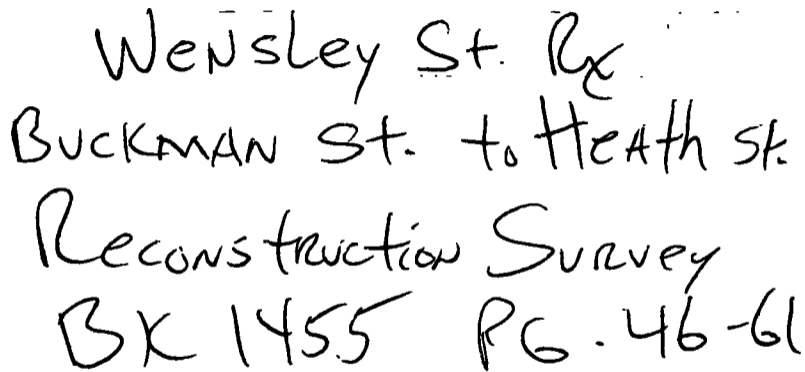 Wensley St. Rx
Buckman St. to Heath St.
Reconstruction Survey
BK 1455 PG. 46-61